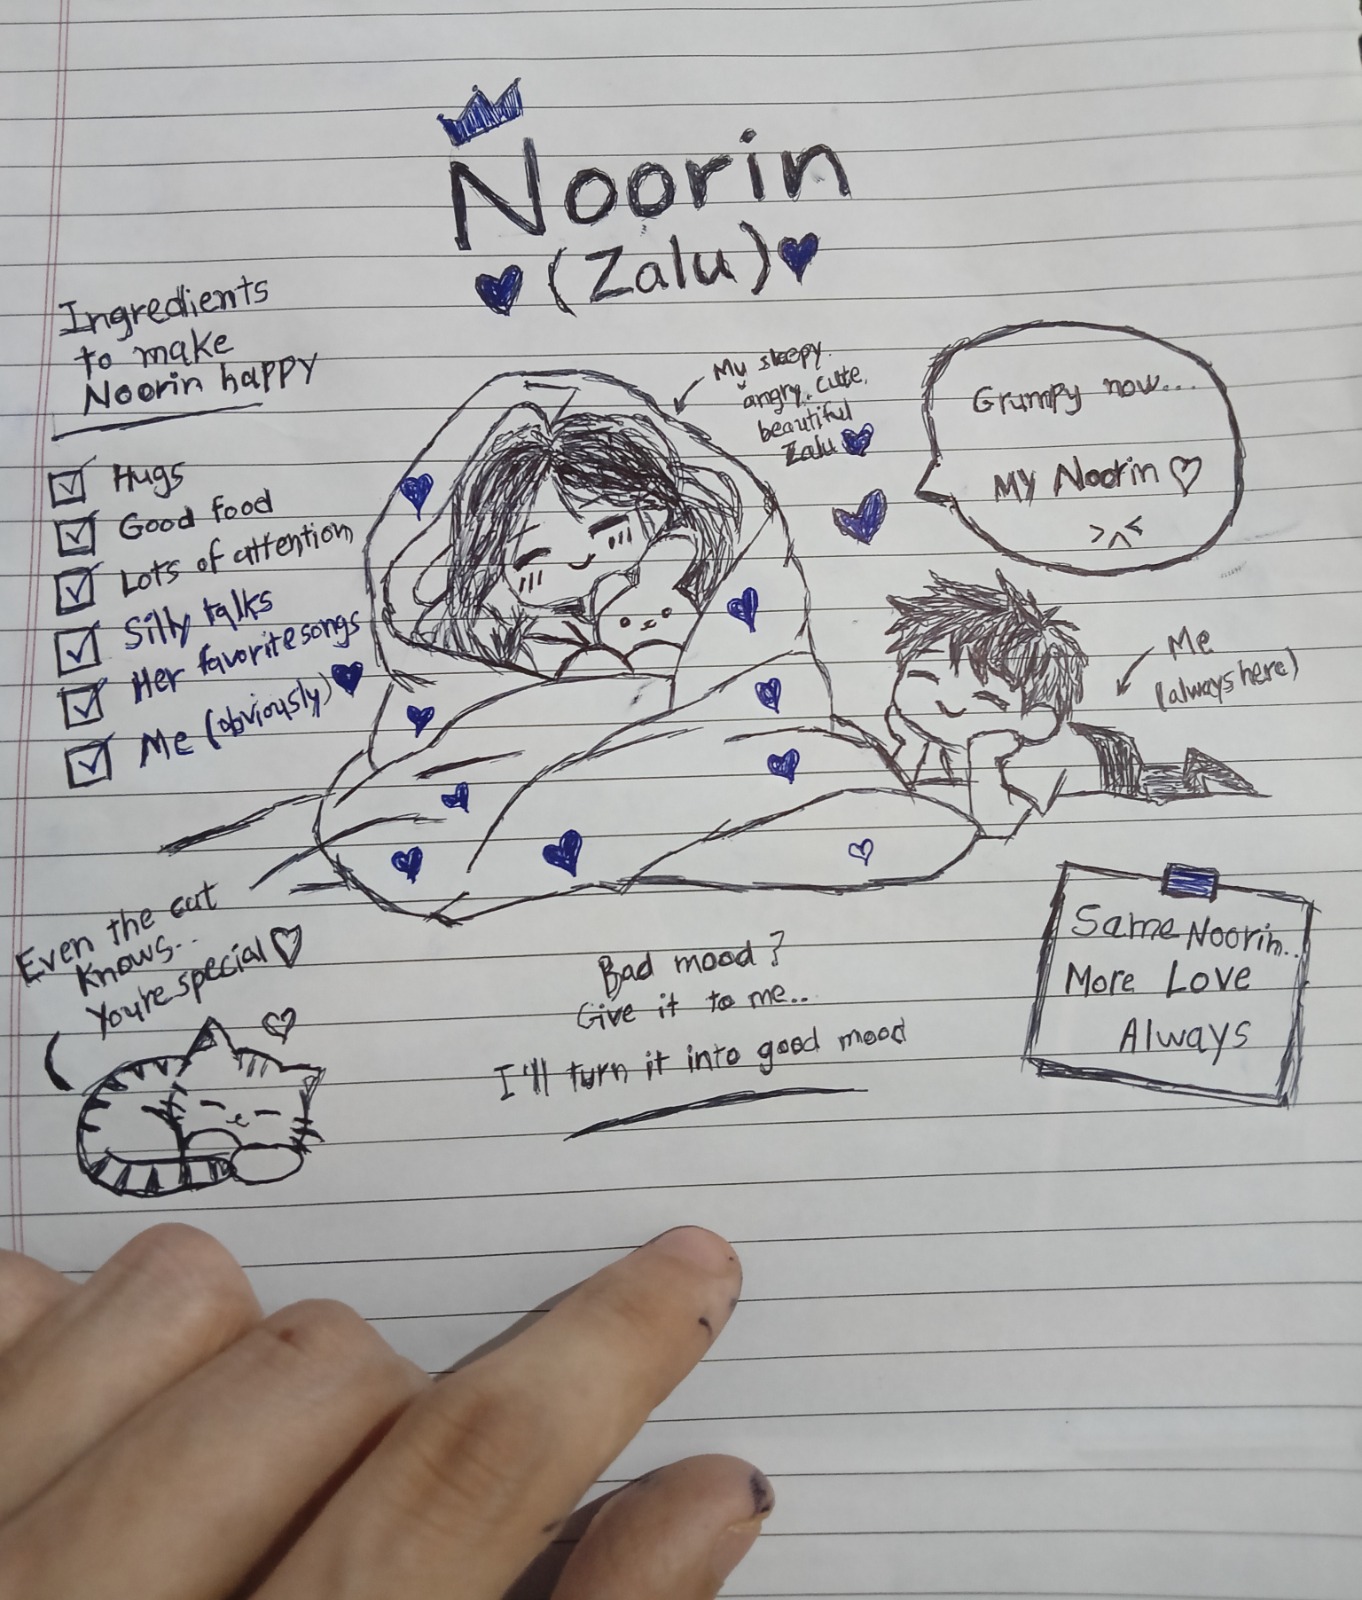 Noorin
(Zalu)
Ingredients
to make
Noorin happy
Hugs
Good food
Lots of attention
Silly talks
Her favorite songs
Me (obviously)
My sleepy.
angry.. cute.
beautiful
Zalu
Grumpy now...
MY Noorin
Me
(always here)
Even the cat
Knows...
You're special
Bad mood?
Give it to me..
I'll turn it into good mood
Same Noorin..
More Love
Always